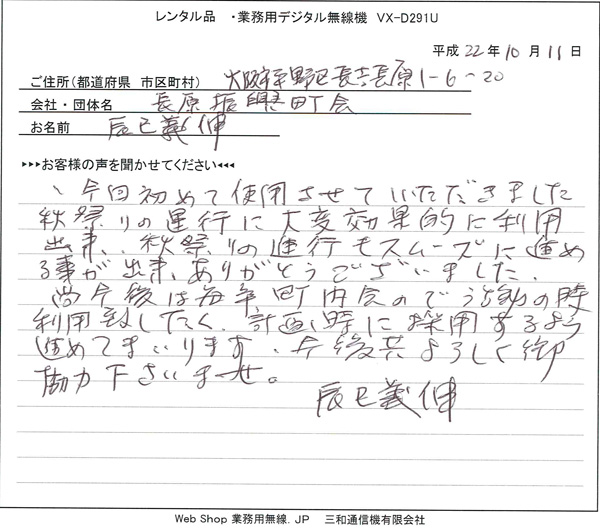 レンタル品 ・業務用デジタル無線機 VX-D291U
平成 22年 10月 11日
ご住所(都道府県 市区町村) 大阪市平野区長吉長原1-6-20
会社・団体名 長原振興町会
お名前 辰巳義伸
▸▸▸お客様の声を聞かせてください◂◂◂
今回初めて使用させていただきました
秋祭りの運行に大変効果的に利用
出来、秋祭りの進行もスムーズに進め
る事が出来、ありがとうございました。
尚今後は毎年町内会の の時
利用致したく、計画時に採用するよう
進めてまいります、今後共よろしく御
協力下さいませ。
辰巳義伸
Web Shop 業務用無線.JP 三和通信機有限会社